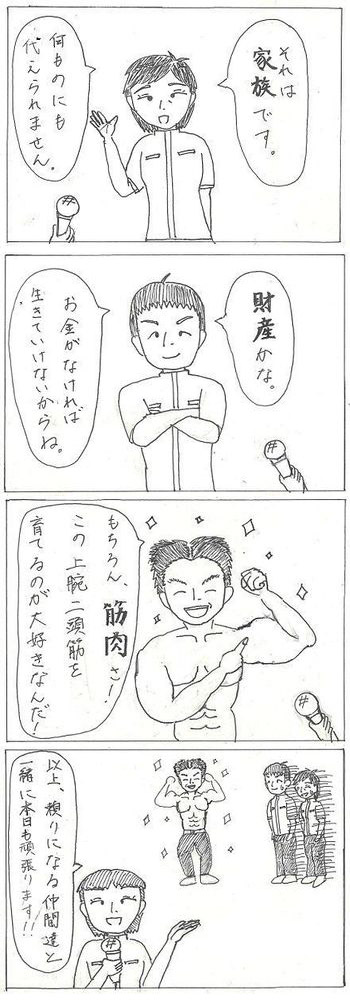 それは
家族です。
何ものにも
代えられません。
財産かな。
お金がなければ
生きていけないからね。
もちろん、
筋肉さ！
この上腕二頭筋を
育てるのが大好きなんだ！
以上、頼りになる仲間達と
一緒に本日も頑張ります!!